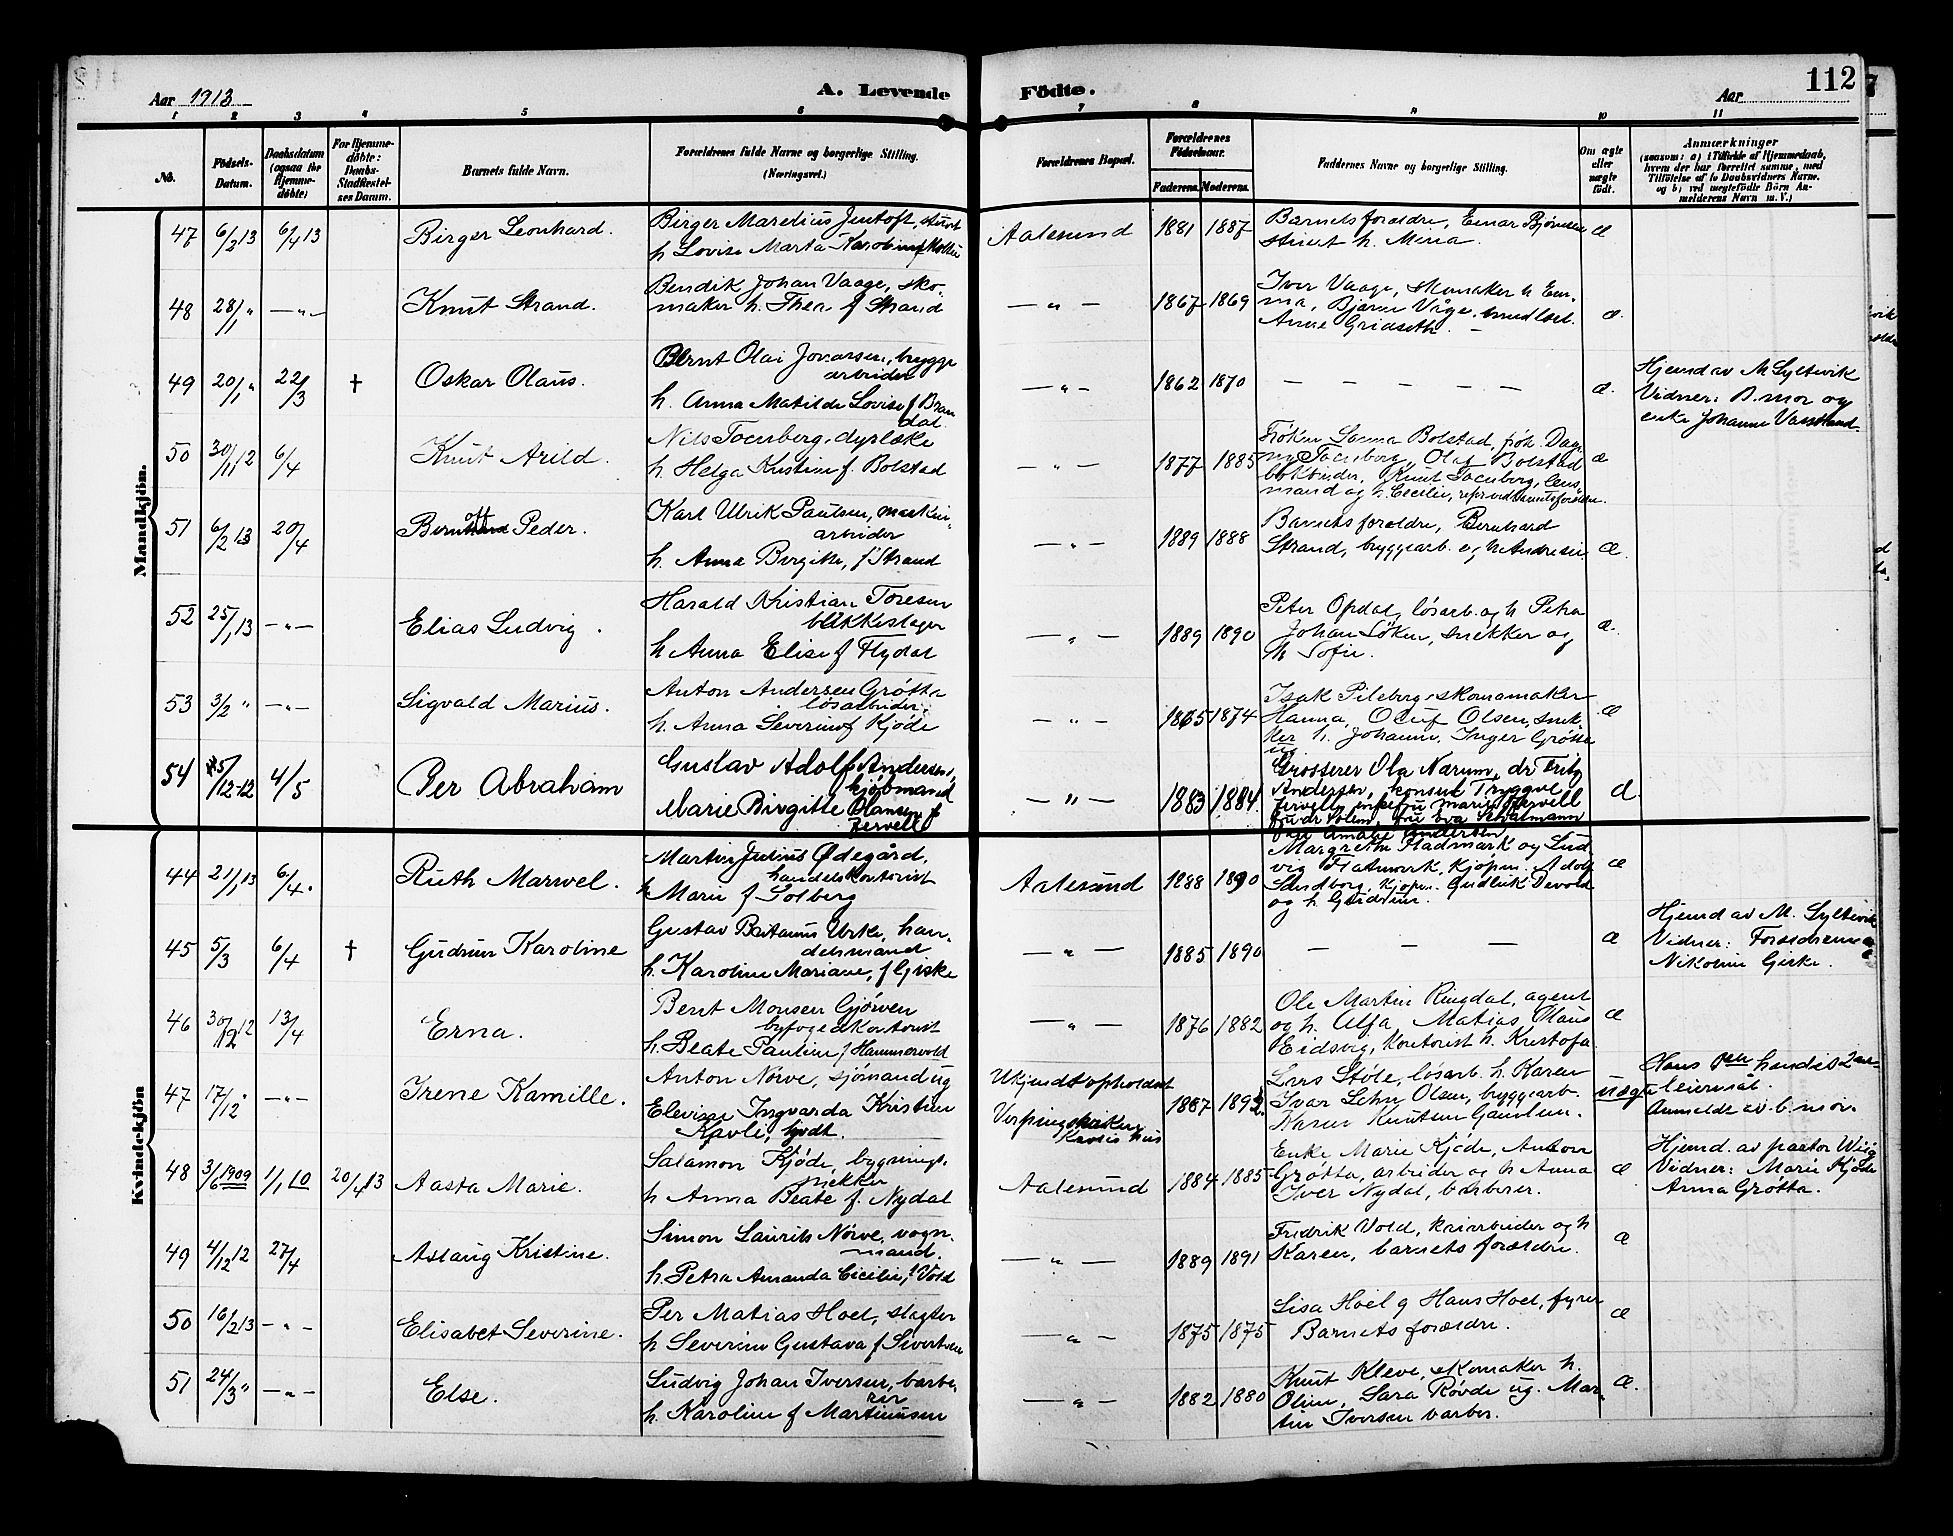 112
Aar 1913
A. Levende Födte.
Aar
1 2 3 4 5 6 7 8 9 10 11
No.
Födsels-Datum.
Daabsdatum (ogsaa for Hjemmedöbte)
For Hjemmedöbte: Daabs-Stadfestelses Datum.
Barnets fulde Navn.
Forældrenes fulde Navne og borgerlige Stilling. (Næringsvei.)
Forældrenes Bopæl.
Forældrenes Födselsaar.
Faderens. Moderens.
Faddernes Navne og borgerlige Stilling.
Om ægte eller uægte født.
Anmærkninger
(saasom: a) i Tilfælde af Hjemmedaab,
hvem der har forrettet samme, med
Tilföielse af to Daabsvidners Navne,
og b) ved uægtefödte Börn Anmelderens Navn m.V.)
Mandkjön.
47 6/2 13 6/4 13 Birger Leonhard.
Birger Marelius Jentoft, stuert
h. Lovise Marta Karoline f
Aalesund 1881 1887
Barnets forældre, Einar Bjørnsen
stuert h. Mina. æ
48 28/1 " — " — Knut Strand.
Bendik Johan Vaage, sko-
maker h. Thea f Strand
— " — 1867 1869
Iver Vaage, skomaker h Em-
ma, Bjarne Våge
Anne Gridseth. — æ.
49 20/1 " 22/3 † Oskar Olaus.
Bernt Olai Jonassen, brygge
arbeider
h. Anna Matilde Lovise f Bran
dal.
— " — 1862 1870 — — — — — æ.
Hjemd av M Syltevik
Vidner: B. mor og
enke Johanne
50 30/11 12 6/4 Knut Arild.
Nils Tornberg, dyrlæke
h. Helga Kristine f. Bolstad
— " — 1877 1885
Frøken Sanna Bolstad, frøk. Dag-
ny Olaf Bolstad
bokbinder, Knut lens-
mand og h. Cecilie, repr ved barnets forældre. æ
51 6/2 13 20/4 Peder.
Karl Ulrik Paulsen, maskin-
arbeider
h. Anna Birgitte, f Strand
— " — 1889 1888
Barnets forældre, Bernhard
Strand, bryggearb. og h Andresine æ.
52 25/1 13 — " — Elias Ludvig.
Harald Kristian Toresen
blikkeslager
h Anna Elise f Flydal
— " — 1889 1890
Peter Opdal, løsarb. og h Petra
Johan Søken, snekker og
h Sofie. æ.
53 3/2 " — " — Sigvald Marius.
Anton Andersen Grøtta
løsarbeider.
h. Anna Severine f Kjøde
— " — 1865 1874
Isak Pileberg skomamaker
Hanna, Oluf Olsen, snek-
ker h. Johanne. Inger Grøtta
ug. æ
54 5/12-12 4/5 Per Abraham
Gustav Adolf Andersen,
kjöbmand
Marie Birgitte Hansen f
Zervell
— " — 1883 1884
Grosserer Ola Narum, dr Fritz
Andersen, konsul Tryggve
Jervell, enkefru Marie Jervell
fru dr Solem, fru Eva Schulmann
fru Amalie Andersen æ.
Kvindekjön
44 21/1 13 6/4. Ruth Marwel.
Martin Julius Ødegård,
handelskontorist
h Marie f Solberg
Aalesund 1888 1890
Margrethe Fladmark og Lud-
vig Flatmark, kjøpm. Adolf
Sandborg, kjøpm. Gudleik Devold
og h. Gudrun. æ
45 5/3 6/4 † Gudrun Karoline
Gustav Urke, han-
delsmand
h. Karoline Mariane, f Giske
— " — 1885 1890 — — — æ
Hjemd av M. Syltevik
Vidner: Forældrene
Nikoline Giske.
46 30/12 12 13/4 Erna.
Bent Monsen Gjørven
byfogedkontorist
h. Beate Pauline f Hammervold
— " — 1876 1882
Ole Martin Ringdal, agent
og h. Alfa, Matias Olaus
Eidsvig, kontorist h. Kristofa æ
47 17/12 " — " — Irene Kamille.
Anton Nörve, sjømand ug
Elevine Ingvarda Kristine
Kavli, hjvdt.
Ukjendt opholdsst
hus
1887 1892.
Lars Støle, løsarb. h. Karen
Ivar Lehn Olsen, bryggearb.
Karen Knutsen uægte
Hans hendes 2det
leiermål.
Anmeldt av b. mor.
48 3/6 1909 1/1 10 20/4 13 Aasta Marie.
Salamon Kjøde, bygnings-
snekker
h Anna Beate f. Nydal
Aalesund 1884 1885
Enke Marie Kjøde, Anton
Grøtta, arbeider og h Anna
Iver Nydal, barberer. æ
Hjemd. av pastor Wiig
Vidner: Marie Kjøde
Anna Grøtta.
49 4/12 12 27/4 Aslaug Kristine.
Simon Laurits Nørve, vogn-
mand.
h. Petra Amanda Cecilie, f Vold
— " — 1889 1891
Fredrik Vold, kaiarbeider og h
Karen, barnets forældre. æ
50 16/2 13 — " — Elisabet Severine.
Per Matias Hoel, slagter
h Severine Gustava f Sivertsen
— " — 1875 1875
Lisa Hoel g Hans Hoel, fyrer
Barnets forældre. æ
51 24/3 " — " — Else.
Ludvig Johan Iversen, barbe-
rer
h. Karoline f Martinussen
— " — 1882 1880
Knut Kleve, skomaker h.
Oline, Sara Røvde ug. Mar-
tin Iversen barber. æ.